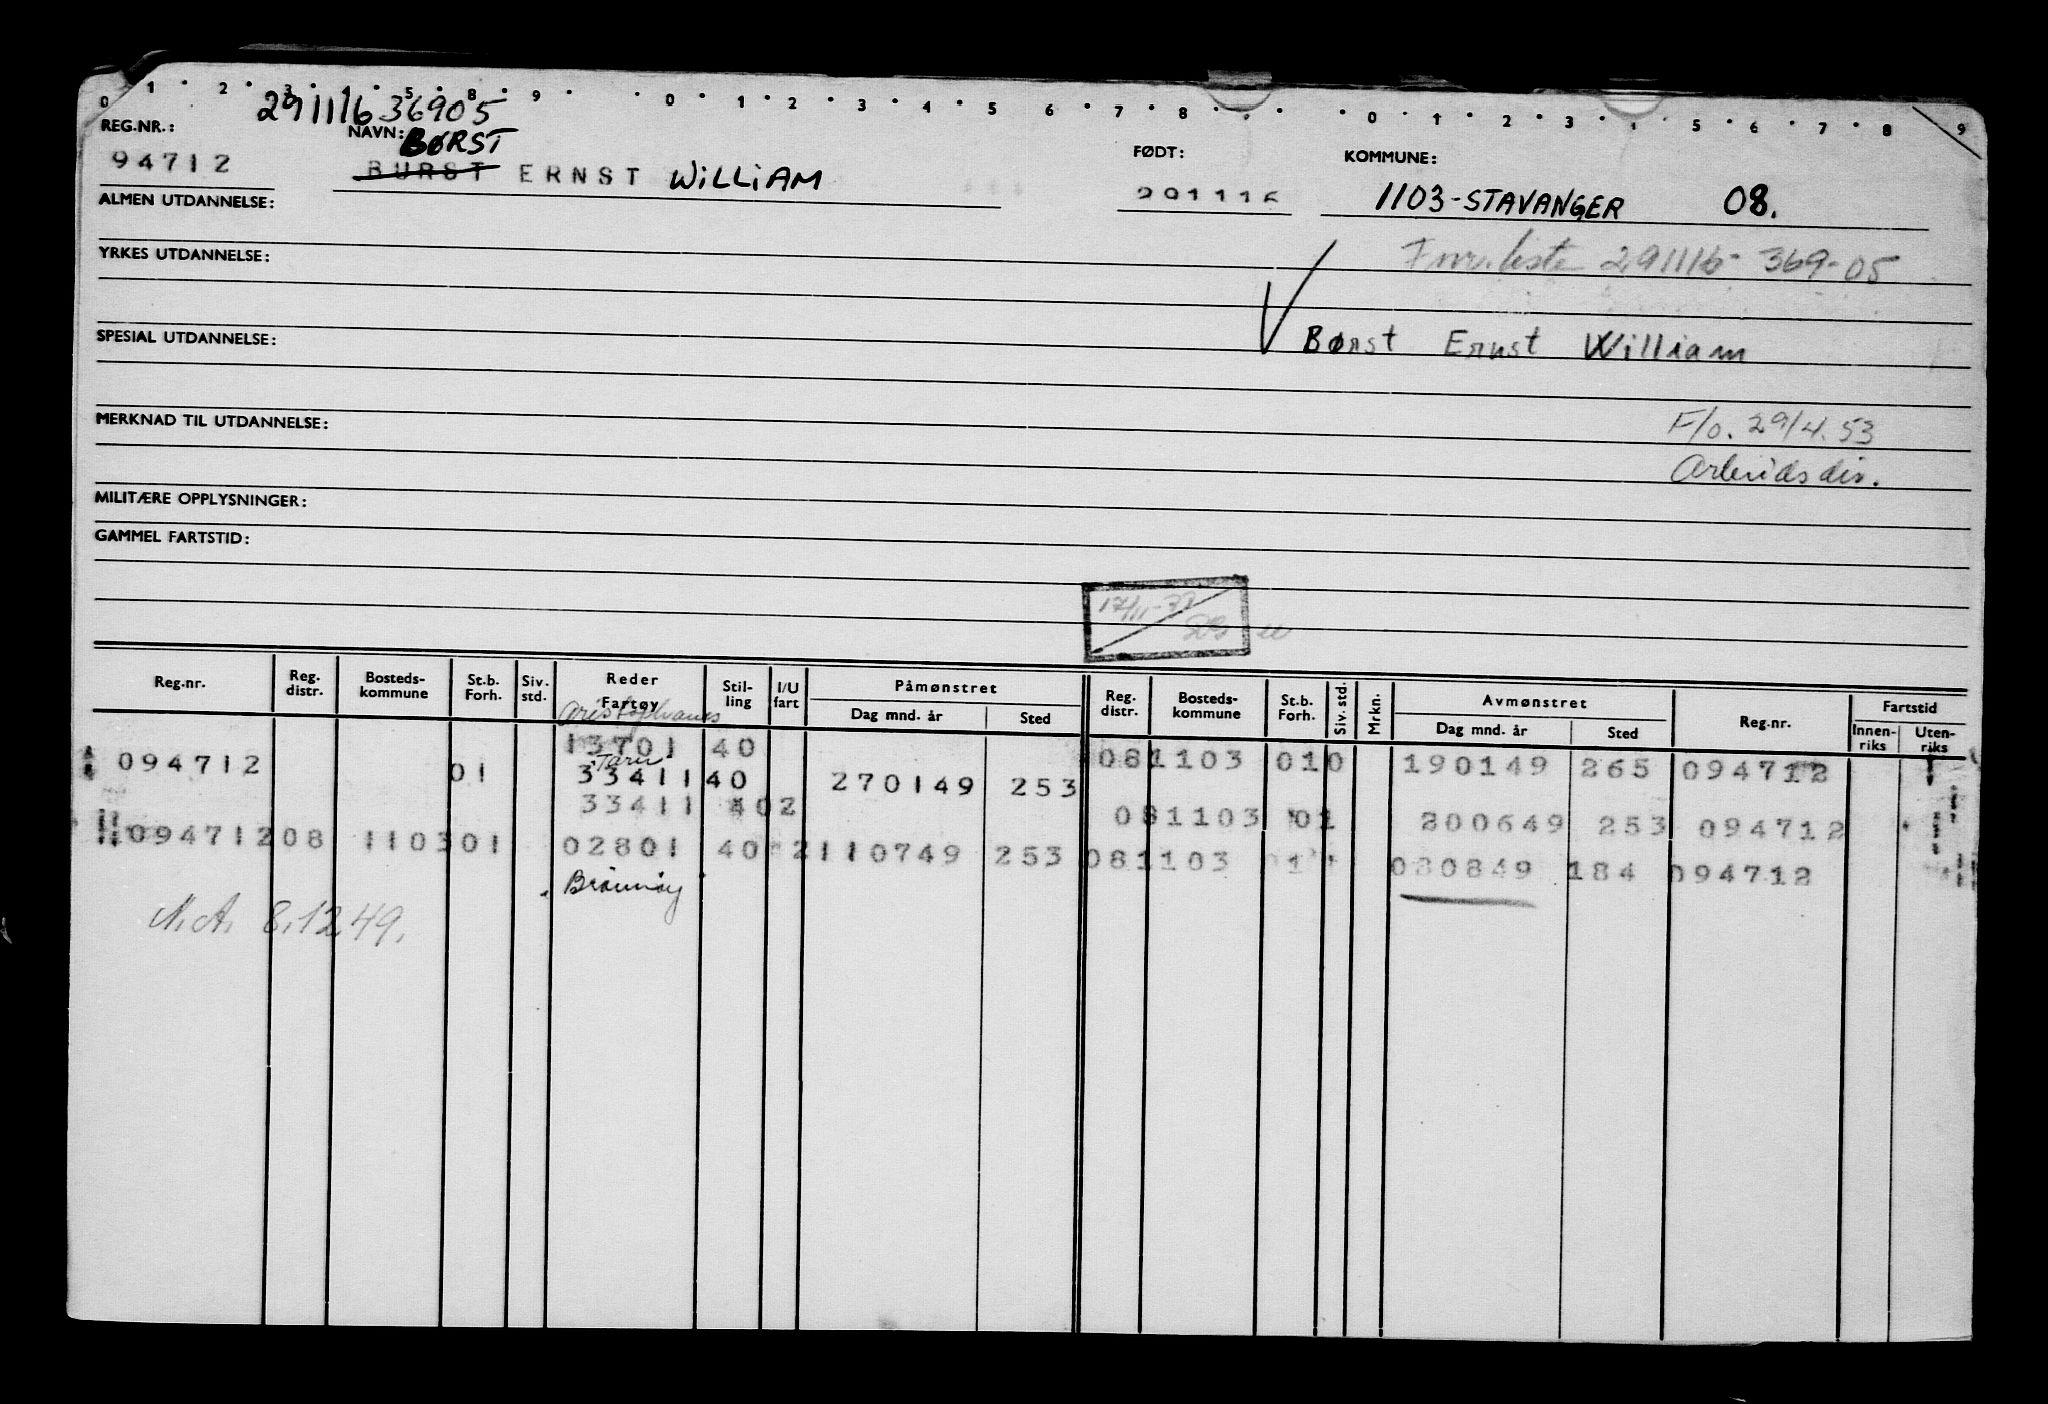 0 1 2 3 4 5 8 9 0 1 2 3 4 5 6 7 8 0 1 2 3 4 5 6 7 8 9
291116 36905
REG.NR.: NAVN: BØRST FØDT: KOMMUNE:
94712 BURST ERNST WILLIAM 291116 1103-STAVANGER 08.
ALMEN UTDANNELSE:
YRKES UTDANNELSE: 291116- 369-05
SPESIAL UTDANNELSE: Børst Ernst William
MERKNAD TIL UTDANNELSE: F/o. 29/4.53
Arbeidsdir.
MILITÆRE OPPLYSNINGER:
GAMMEL FARTSTID:
17/11-72
Reg.nr. Reg. distr. Bosteds-kommune St.b. Forh. Siv. std. Reder Fartøy Stil-ling I/U fart Påmønstret Dag mnd. år Sted Reg. distr. Bosteds-kommune St.b. Forh. Siv. std. Mrkn. Avmønstret Dag mnd. år Sted Reg.nr. Fartstid Innen-riks Uten-riks
Aristophanes
13701 40 081103 010 190149 265 094712
Taru
094712 01 33411 40 270149 253
33411 402 081103 01 200649 253 094712
094712 08 1103 01 02801 40 2 110749 253 081103 01 080849 184 094712
Brønnøy
M.A. 8.12.49.